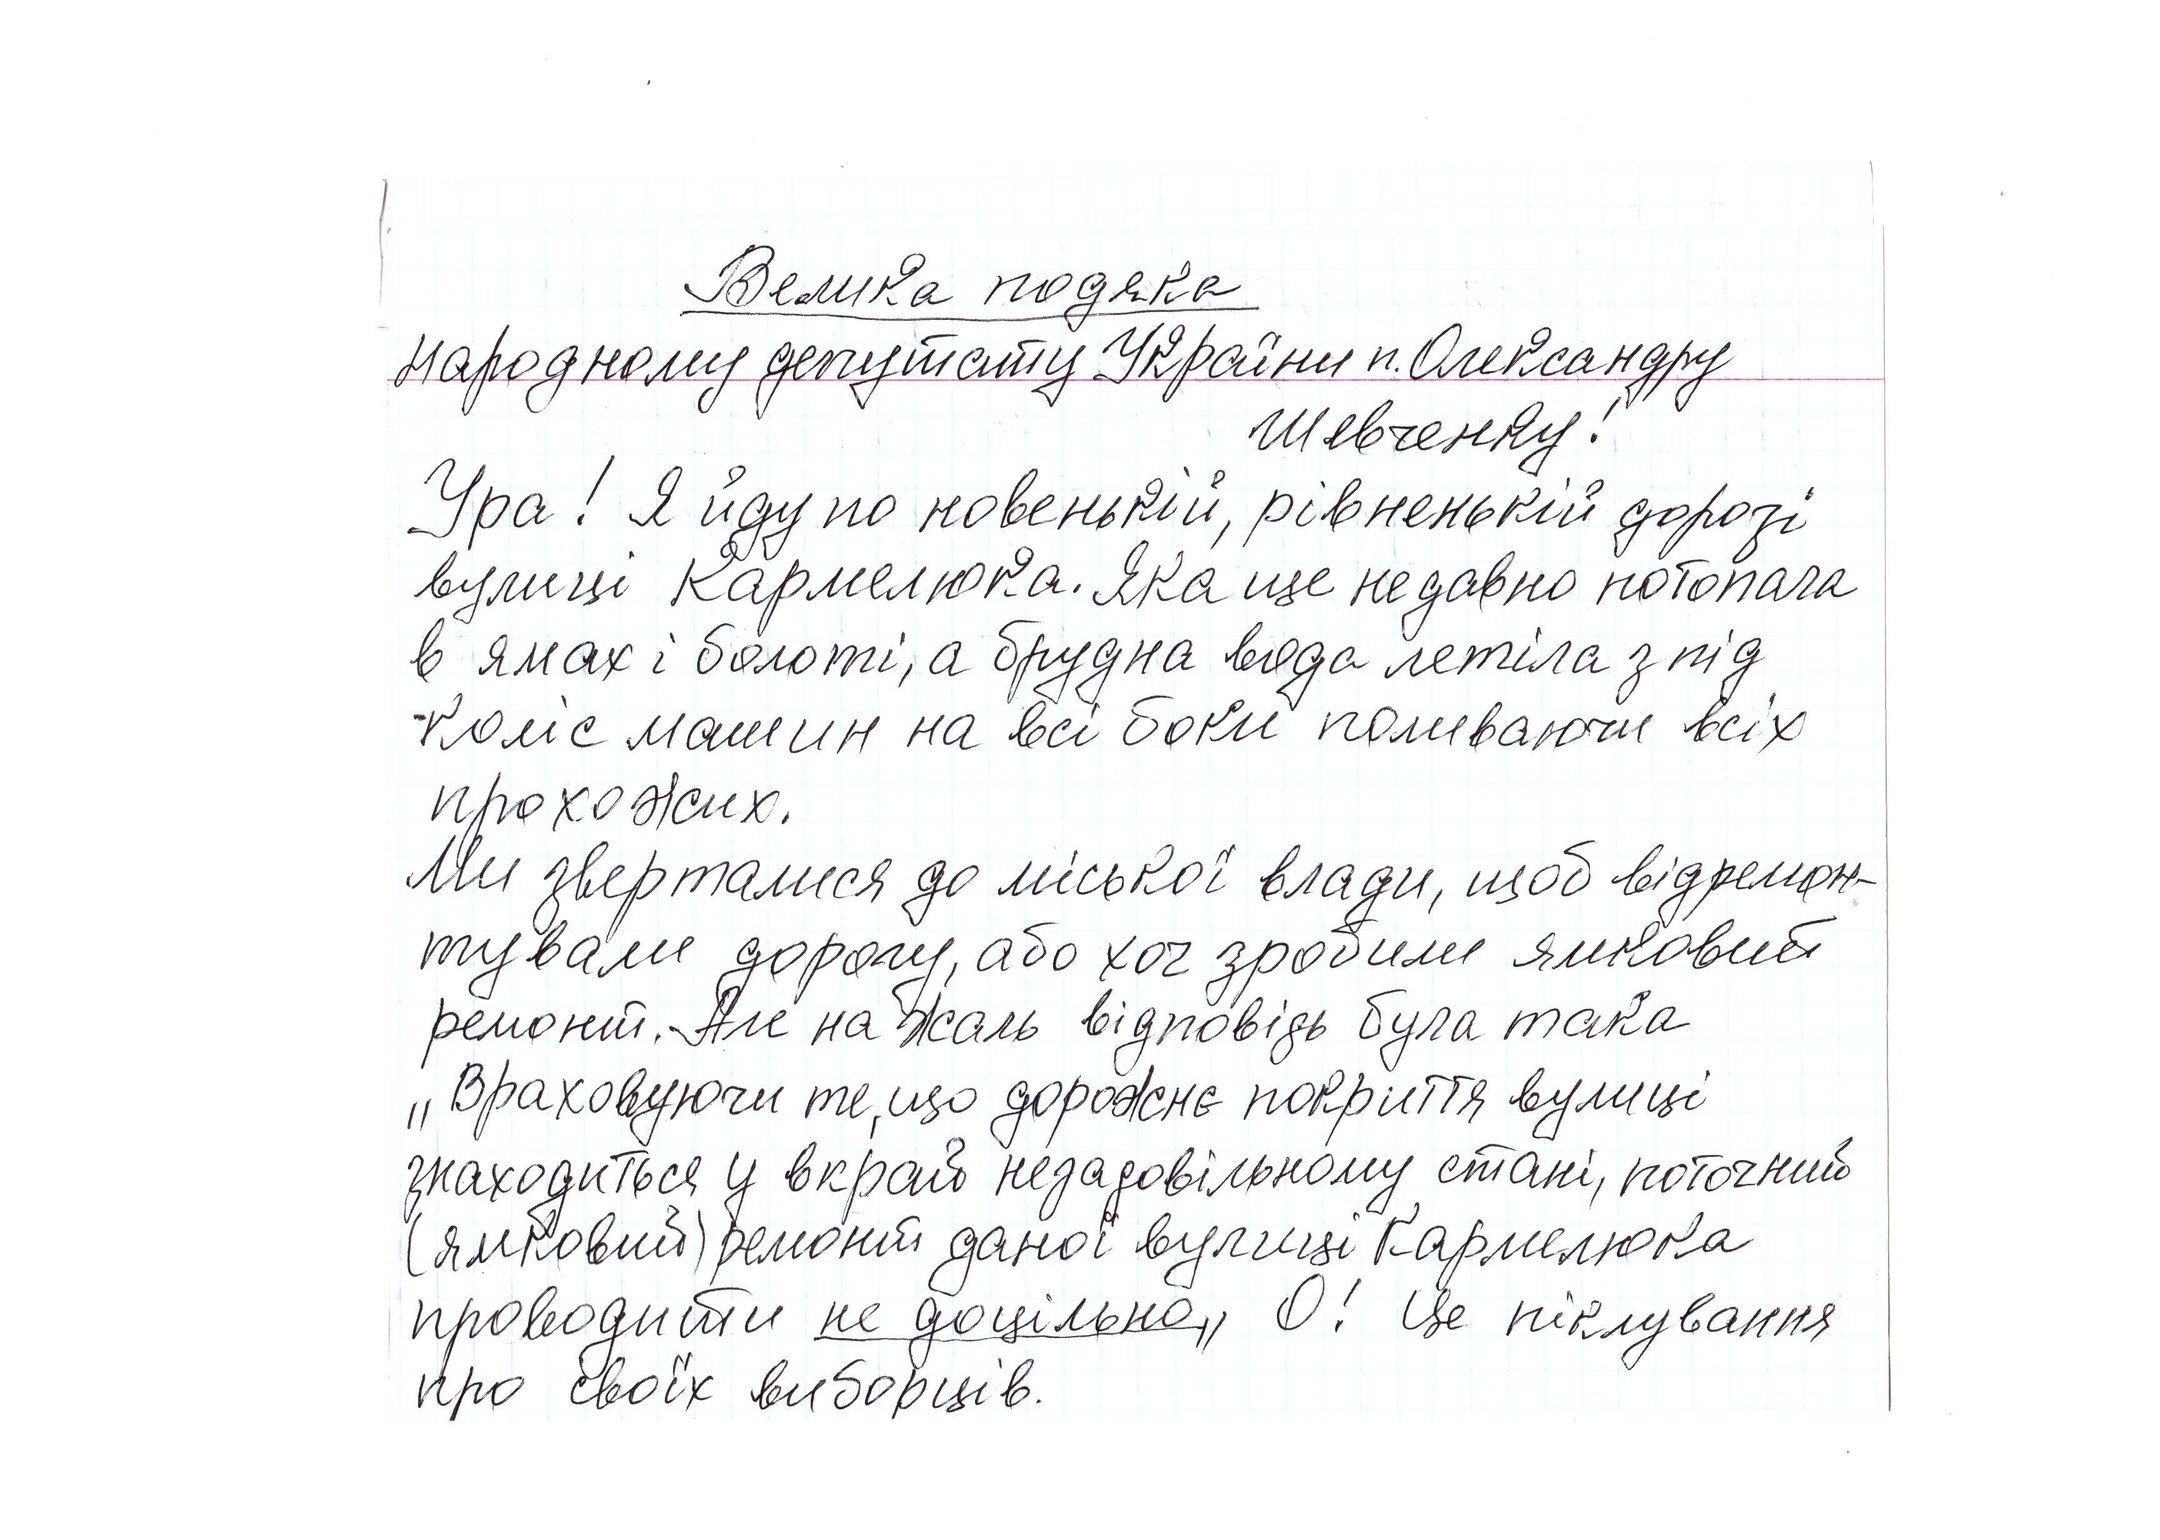 Велика подяка
народному депутату України п. Олександру
Шевченку!
Ура! Я йду по новенькій, рівненькій дорозі
вулиці Кармелюка. Яка ще недавно потопала
в ямах і болоті, а брудна вода летіла з під
коліс машин на всі боки поливаючи всіх
прохожих.
Ми зверталися до міської влади, щоб відремон-
тували дорогу, або хоч зробили ямковий
ремонт. Але на жаль відповідь була така
„Враховуючи те, що дорожнє покриття вулиці
знаходиться у вкрай незадовільному стані, поточний
(ямковий) ремонт даної вулиці Кармелюка
проводити не доцільно„ О! Це піклування
про своїх виборців.